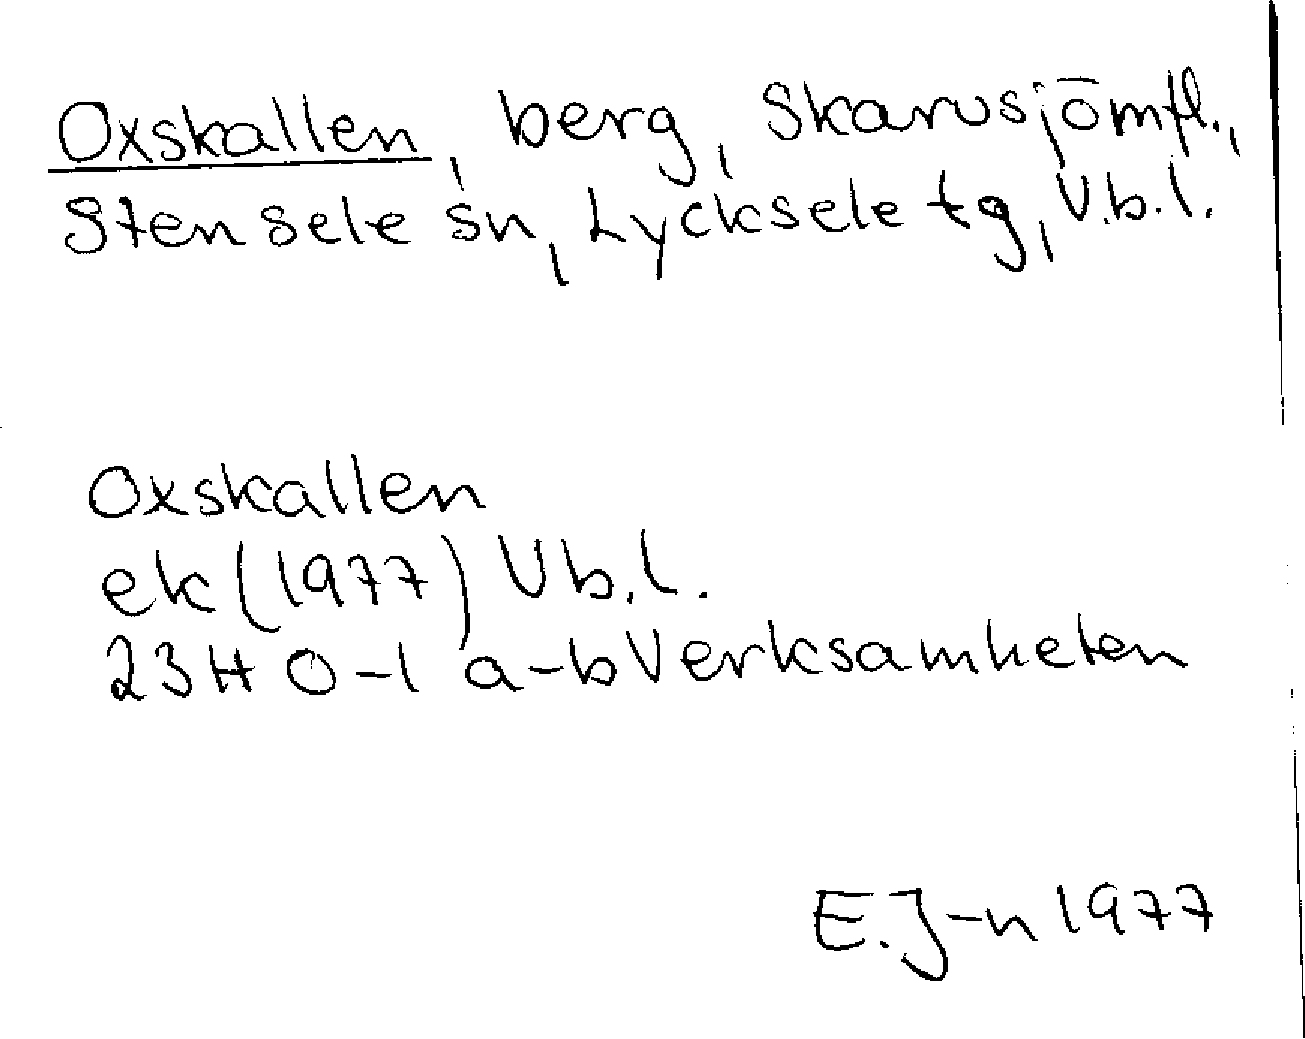 Oxskallen, berg, Skarvsjömfl.,
Stensele sn, Lycksele tg, V.b.l.
Oxskallen
ek (1977) Vb.l.
23H 0-1 a-b Verksamheten
E.J-n 1977